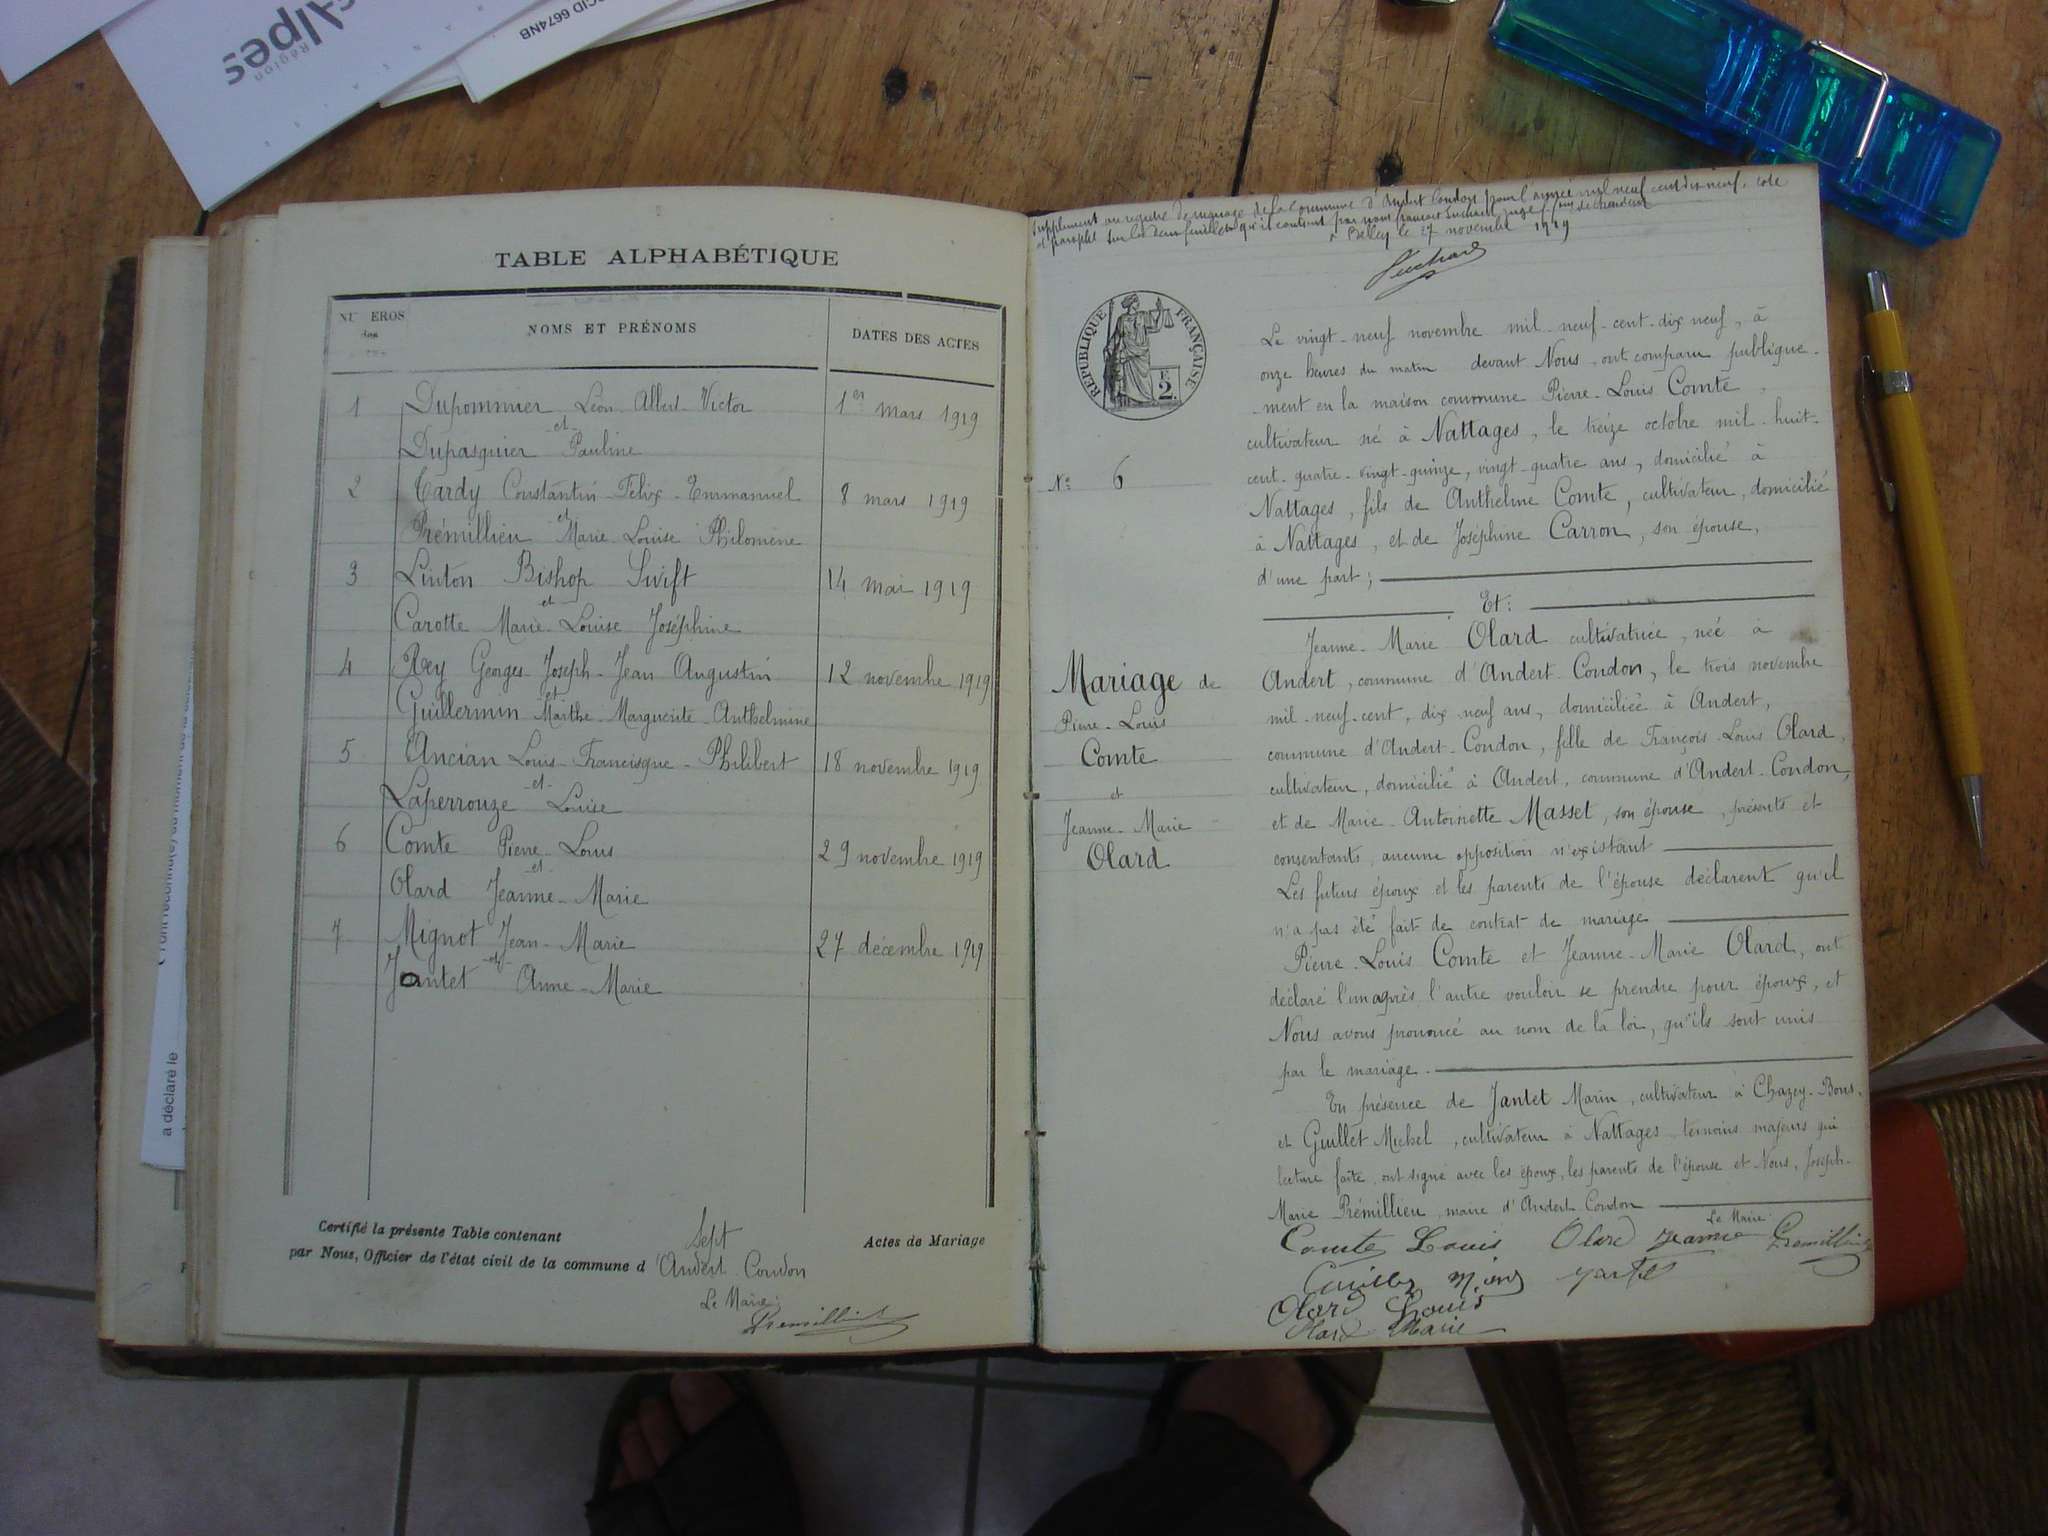 Région
Alpes
CCID 6674NB
a déclaré le
TABLE ALPHABÉTIQUE
NU EROS
des
NOMS ET PRÉNOMS
DATES DES ACTES
1 Dupommier Léon Albert Victor 1er mars 1919
et
Dupasquier Pauline
2 Tardy Constantin Félix Emmanuel 8 mars 1919
et
Prémillieu Marie Louise Philomène
3 Linton Bishop Swift 14 mai 1919
et
Carotte Marie Louise Joséphine
4 Rey Georges Joseph Jean Augustin 12 novembre 1919
et
Guillermin Marthe Marguerite Anthelmine
5 Ancian Louis Francisque Philibert 18 novembre 1919
et
Laperrouze Louise
6 Comte Pierre Louis 29 novembre 1919
et
Olard Jeanne Marie
7 Mignot Jean Marie 27 décembre 1919
et
Jantet Anne Marie
Certifié la présente Table contenant Sept Actes de Mariage
par Nous, Officier de l'état civil de la commune d'Andert Condon
Le Maire:
Prémillieu
Supplément au registre de mariage de la commune d'Andert Condon pour l'année mil neuf cent dix neuf, coté
et paraphé sur les deux feuillets qu'il contient par nous
à Belley le 27 novembre 1919
RÉPUBLIQUE FRANÇAISE
2
No 6
Mariage de
Pierre-Louis
Comte
et
Jeanne-Marie
Olard
Le vingt-neuf novembre mil-neuf-cent-dix neuf, à
onze heures du matin devant Nous ont comparu publique-
-ment en la maison commune Pierre-Louis Comte,
cultivateur né à Nattages, le treize octobre mil-huit-
cent-quatre-vingt-quinze, vingt-quatre ans, domicilié à
Nattages, fils de Anthelme Comte, cultivateur, domicilié
à Nattages, et de Joséphine Carron, son épouse,
d'une part;
Et:
Jeanne-Marie Olard cultivatrice, née à
Andert, commune d'Andert-Condon, le trois novembre
mil-neuf-cent, dix neuf ans, domiciliée à Andert,
commune d'Andert-Condon, fille de François-Louis Olard,
cultivateur, domicilié à Andert, commune d'Andert-Condon,
et de Marie-Antoinette Masset, son épouse, présents et
consentants, aucune opposition n'existant
Les futurs époux et les parents de l'épouse déclarent qu'il
n'a pas été fait de contrat de mariage
Pierre-Louis Comte et Jeanne-Marie Olard, ont
déclaré l'un après l'autre vouloir se prendre pour époux, et
Nous avons prononcé au nom de la loi, qu'ils sont unis
par le mariage.
En présence de Jantet Marin, cultivateur à Chazey-Bons,
et Guillet Michel, cultivateur à Nattages, témoins majeurs qui
lecture faite, ont signé avec les époux, les parents de l'épouse et Nous, Joseph-
Marie Prémillieu, maire d'Andert Condon
Le Maire:
Comte Louis Olard Jeanne Prémillieu
Olard Louis
Olard Marie